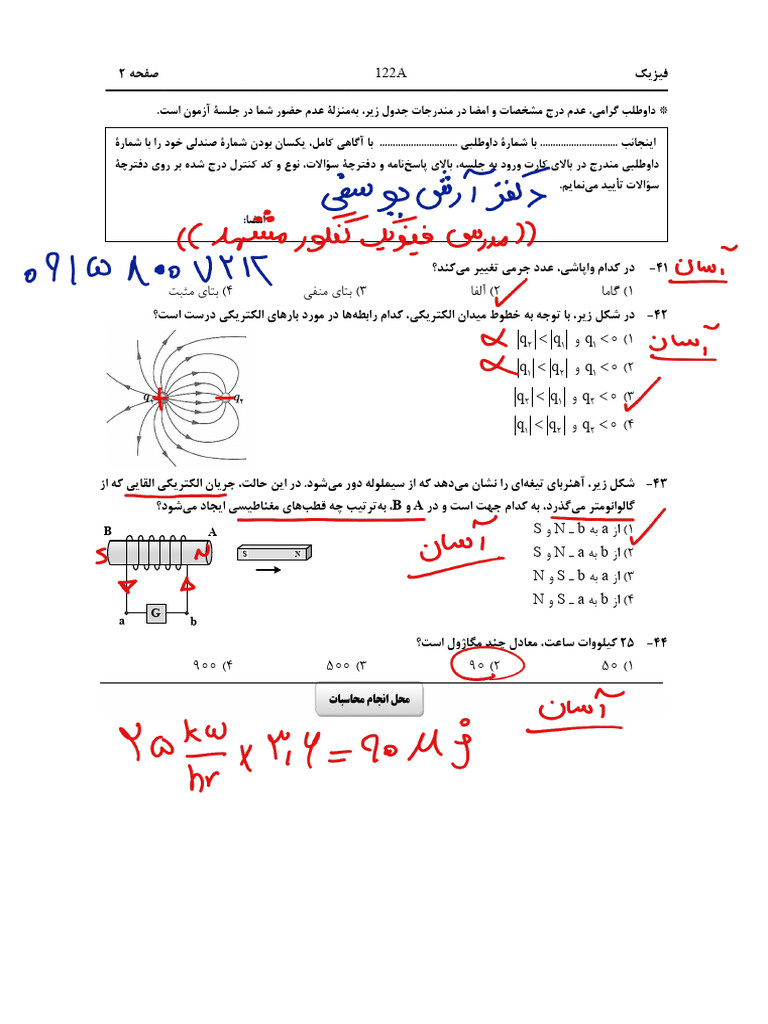 فیزیک 122A صفحه ۲
* داوطلب گرامی، عدم درج مشخصات و امضا در مندرجات جدول زیر، به‌منزلهٔ عدم حضور شما در جلسهٔ آزمون است.
اینجانب .............................. با شمارهٔ داوطلبی .............................. با آگاهی کامل، یکسان بودن شمارهٔ صندلی خود را با شمارهٔ
داوطلبی مندرج در بالای کارت ورود به جلسه، بالای پاسخ‌نامه و دفترچهٔ سؤالات، نوع و کد کنترل درج شده بر روی دفترچهٔ
سؤالات تأیید می‌نمایم.
دکتر آرش یوسفی
امضا:
((مدرس فیزیک کنکور مشهد))
۰۹۱۵۸۰۰۷۲۱۲
۴۱- در کدام واپاشی، عدد جرمی تغییر می‌کند؟
آسان
۱) گاما ۲) آلفا ۳) بتای منفی ۴) بتای مثبت
۴۲- در شکل زیر، با توجه به خطوط میدان الکتریکی، کدام رابطه‌ها در مورد بارهای الکتریکی درست است؟
آسان
۱) q₁ < ۰ و |q₂| < |q₁|
۲) q₁ < ۰ و |q₁| < |q₂|
۳) q₂ < ۰ و |q₂| < |q₁|
۴) q₂ < ۰ و |q₁| < |q₂|
q₁ + − q₂
۴۳- شکل زیر، آهنربای تیغه‌ای را نشان می‌دهد که از سیملوله دور می‌شود. در این حالت، جریان الکتریکی القایی که از
گالوانومتر می‌گذرد، به کدام جهت است و در A و B، به‌ترتیب چه قطب‌های مغناطیسی ایجاد می‌شود؟
آسان
۱) از a به b ـ N و S
۲) از b به a ـ N و S
۳) از a به b ـ S و N
۴) از b به a ـ S و N
B A
S N S N
G
a b
۴۴- ۲۵ کیلووات ساعت، معادل چند مگاژول است؟
۱) ۵۰ ۲) ۹۰ ۳) ۵۰۰ ۴) ۹۰۰
محل انجام محاسبات
آسان
۲۵ kw/hr × ۳٫۶ = ۹۰ M ژ